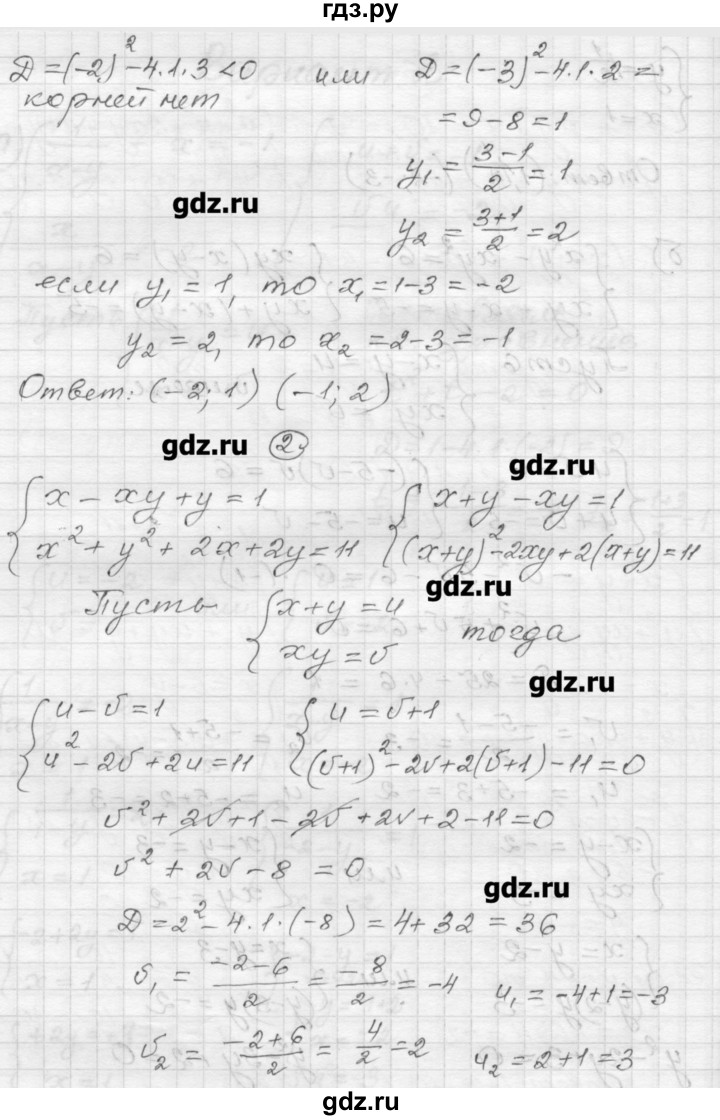 гдз.ру
Д = (-2)² - 4·1·3 < 0 или Д = (-3)² - 4·1·2 =
корней нет
= 9 - 8 = 1
y₁ = (3-1)/2 = 1
gdz.ru
y₂ = (3+1)/2 = 2
если y₁ = 1, то x₁ = 1-3 = -2
y₂ = 2, то x₂ = 2-3 = -1
Ответ: (-2; 1) (-1; 2)
gdz.ru
2.
gdz.ru
{ x - xy + y = 1 { x+y - xy = 1
{ x² + y² + 2x + 2y = 11 { (x+y)² - 2xy + 2(x+y) = 11
gdz.ru
Пусть { x + y = u
{ xy = v тогда
gdz.ru
{ u - v = 1 { u = v+1
{ u² - 2v + 2u = 11 { (v+1)² - 2v + 2(v+1) - 11 = 0
v² + 2v + 1 - 2v + 2v + 2 - 11 = 0
v² + 2v - 8 = 0
gdz.ru
Д = 2² - 4·1·(-8) = 4 + 32 = 36
v₁ = (-2-6)/2 = -8/2 = -4 u₁ = -4+1 = -3
v₂ = (-2+6)/2 = 4/2 = 2 u₂ = 2+1 = 3
gdz.ru